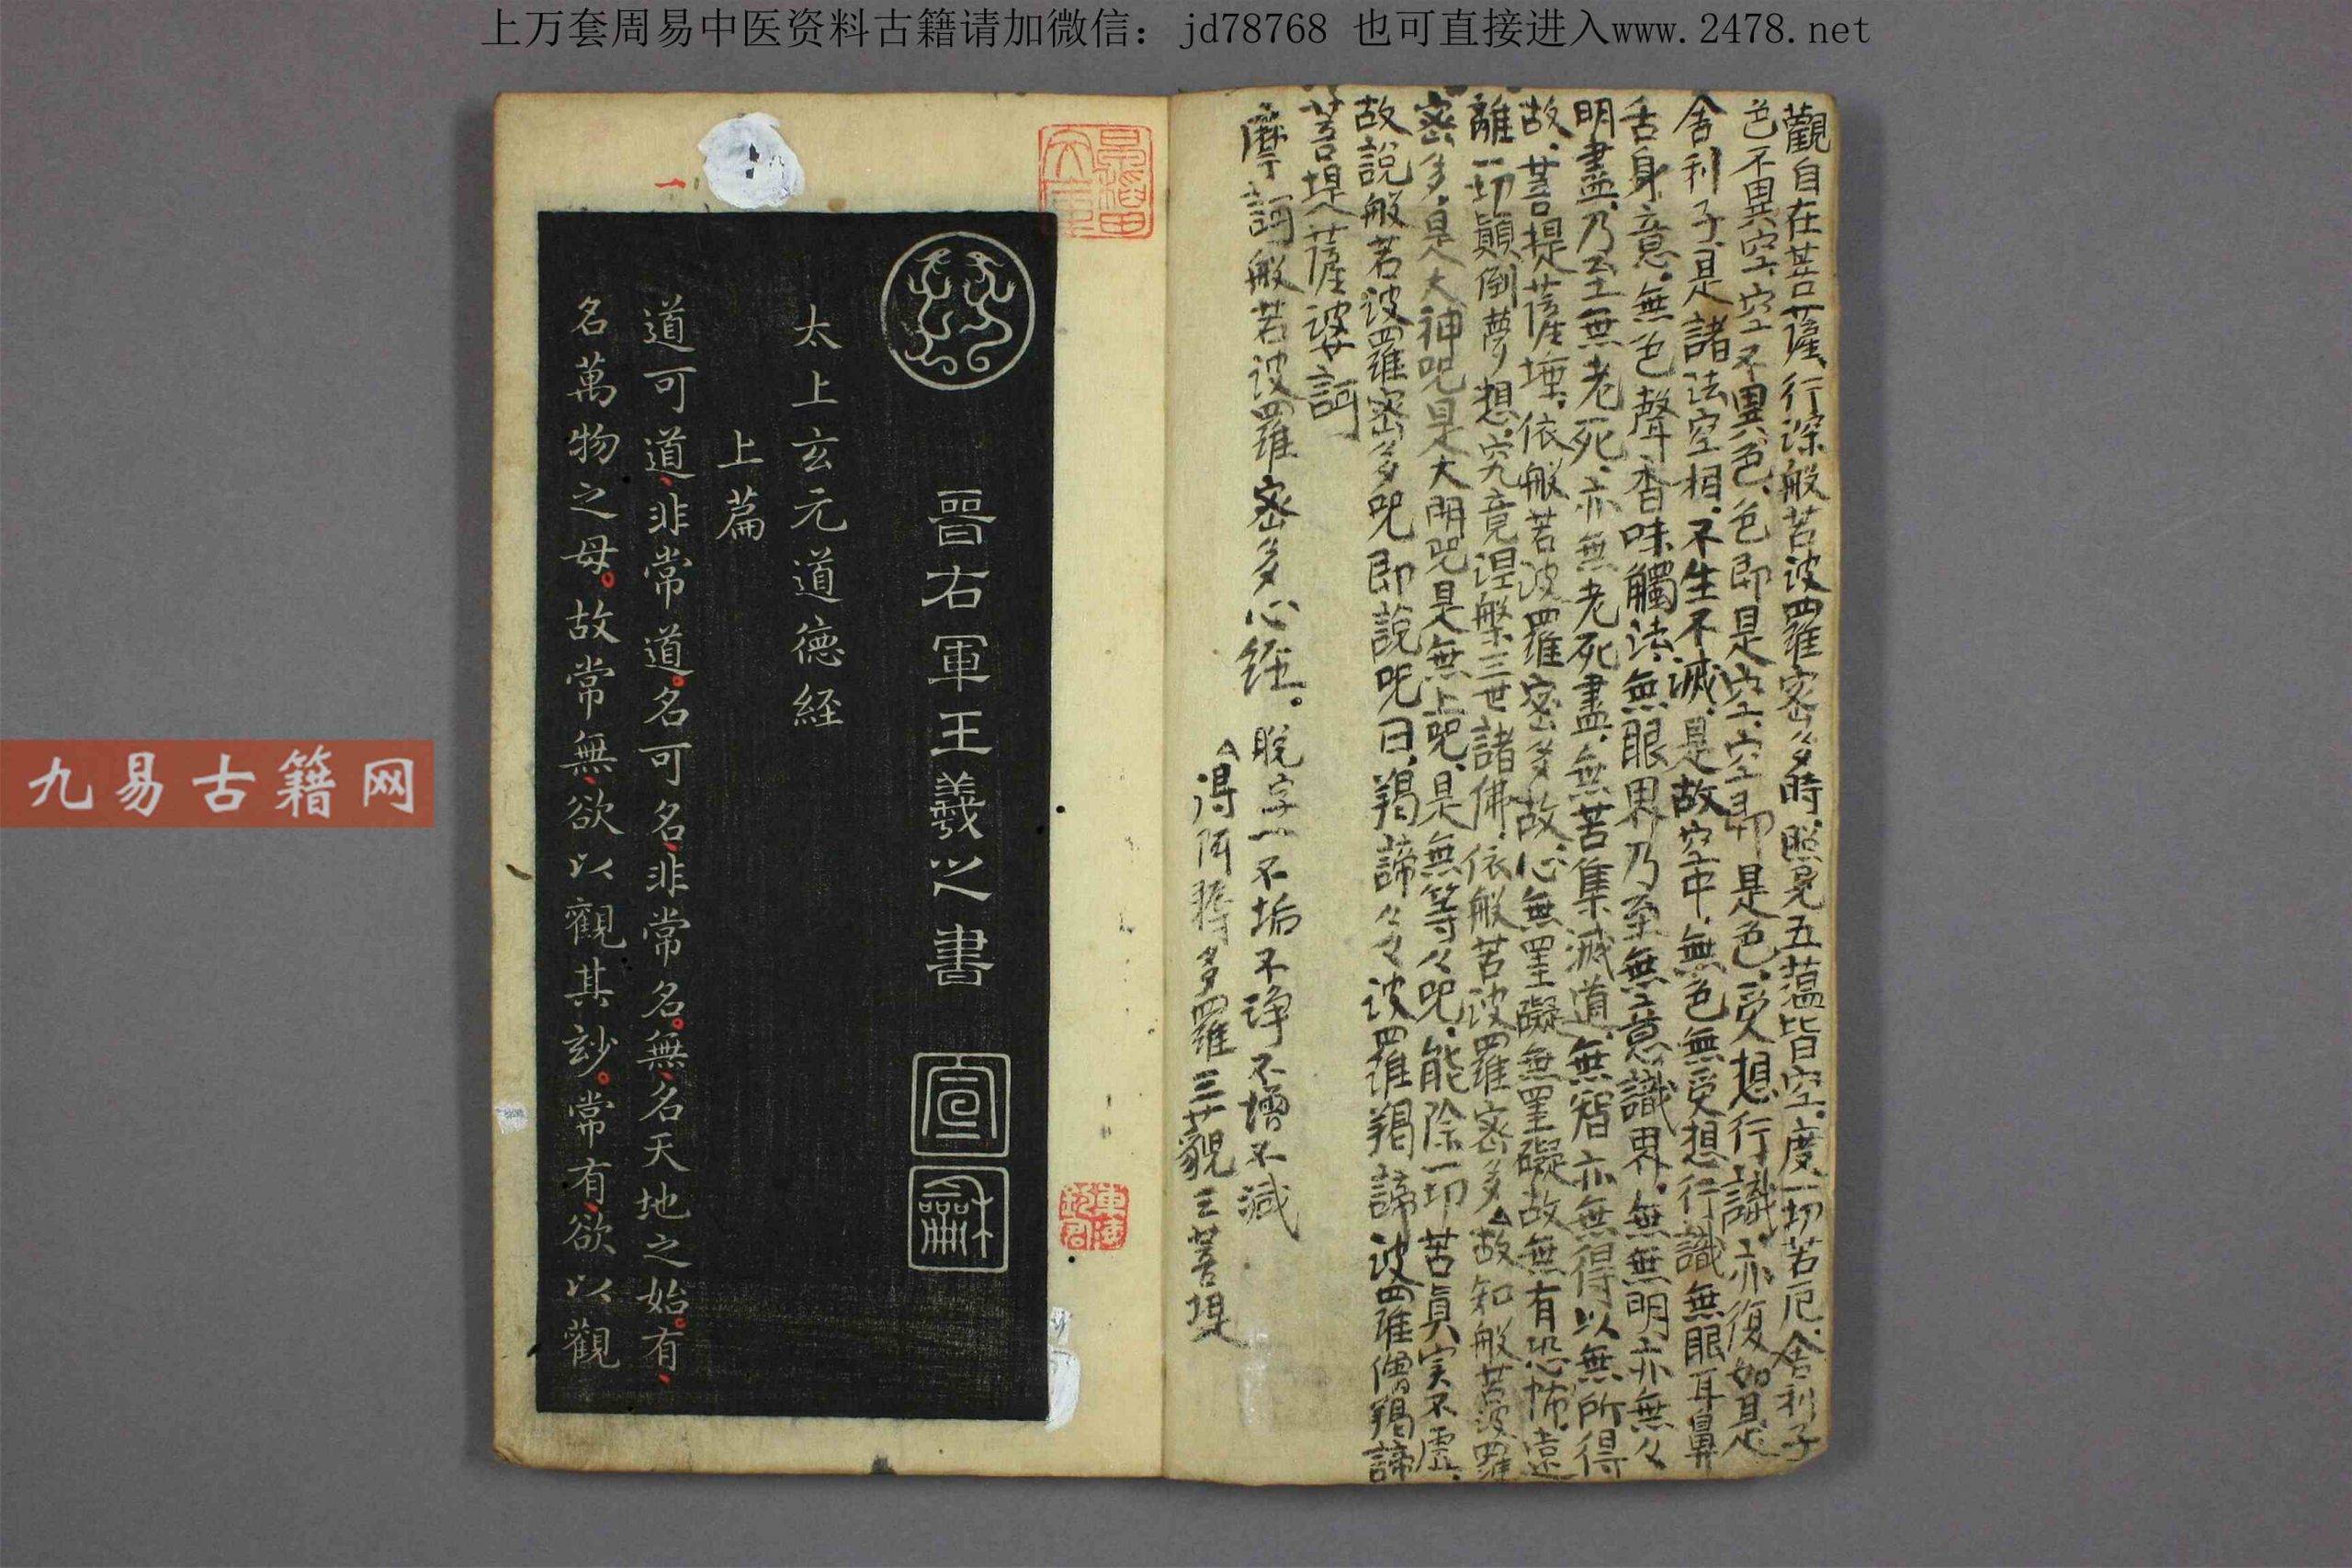 上万套周易中医资料古籍请加微信：jd78768 也可直接进入www.2478.net
九易古籍网
觀自在菩薩、行深般若波羅密多時、照見五蘊皆空、度一切苦厄、舍利子
色不異空、空不異色、色即是空、空即是色、受想行識、亦復如是
舍利子、是諸法空相、不生不滅、是故空中、無色無受想行識無眼耳鼻
舌身意、無色聲香味觸法、無眼界乃至無意識界、無無明亦無々
明盡、乃至無老死、亦無老死盡、無苦集滅道、無智亦無得以無所得
故、菩提薩埵、依般若波羅密多故、心無罣礙無罣礙故無有恐怖、遠
離一切顛倒夢想、究竟涅槃三世諸佛、依般若波羅密多、故知般若波羅
密多、是大神呪是大明呪是無上呪、是無等々呪、能除一切苦真実不虛、
故說般若波羅密多呪即說呪曰、羯諦々々波羅羯諦波羅僧羯諦
菩提薩婆訶
摩訶般若波羅密多心経。脫字一不垢不浄不增不減
得阿耨多羅三藐三菩提
晉右軍王羲之書
宣
龢
太上玄元道德経
上篇
道可道、非常道。名可名、非常名。無、名天地之始。有、
名萬物之母。故常無、欲以觀其玅。常有、欲以觀